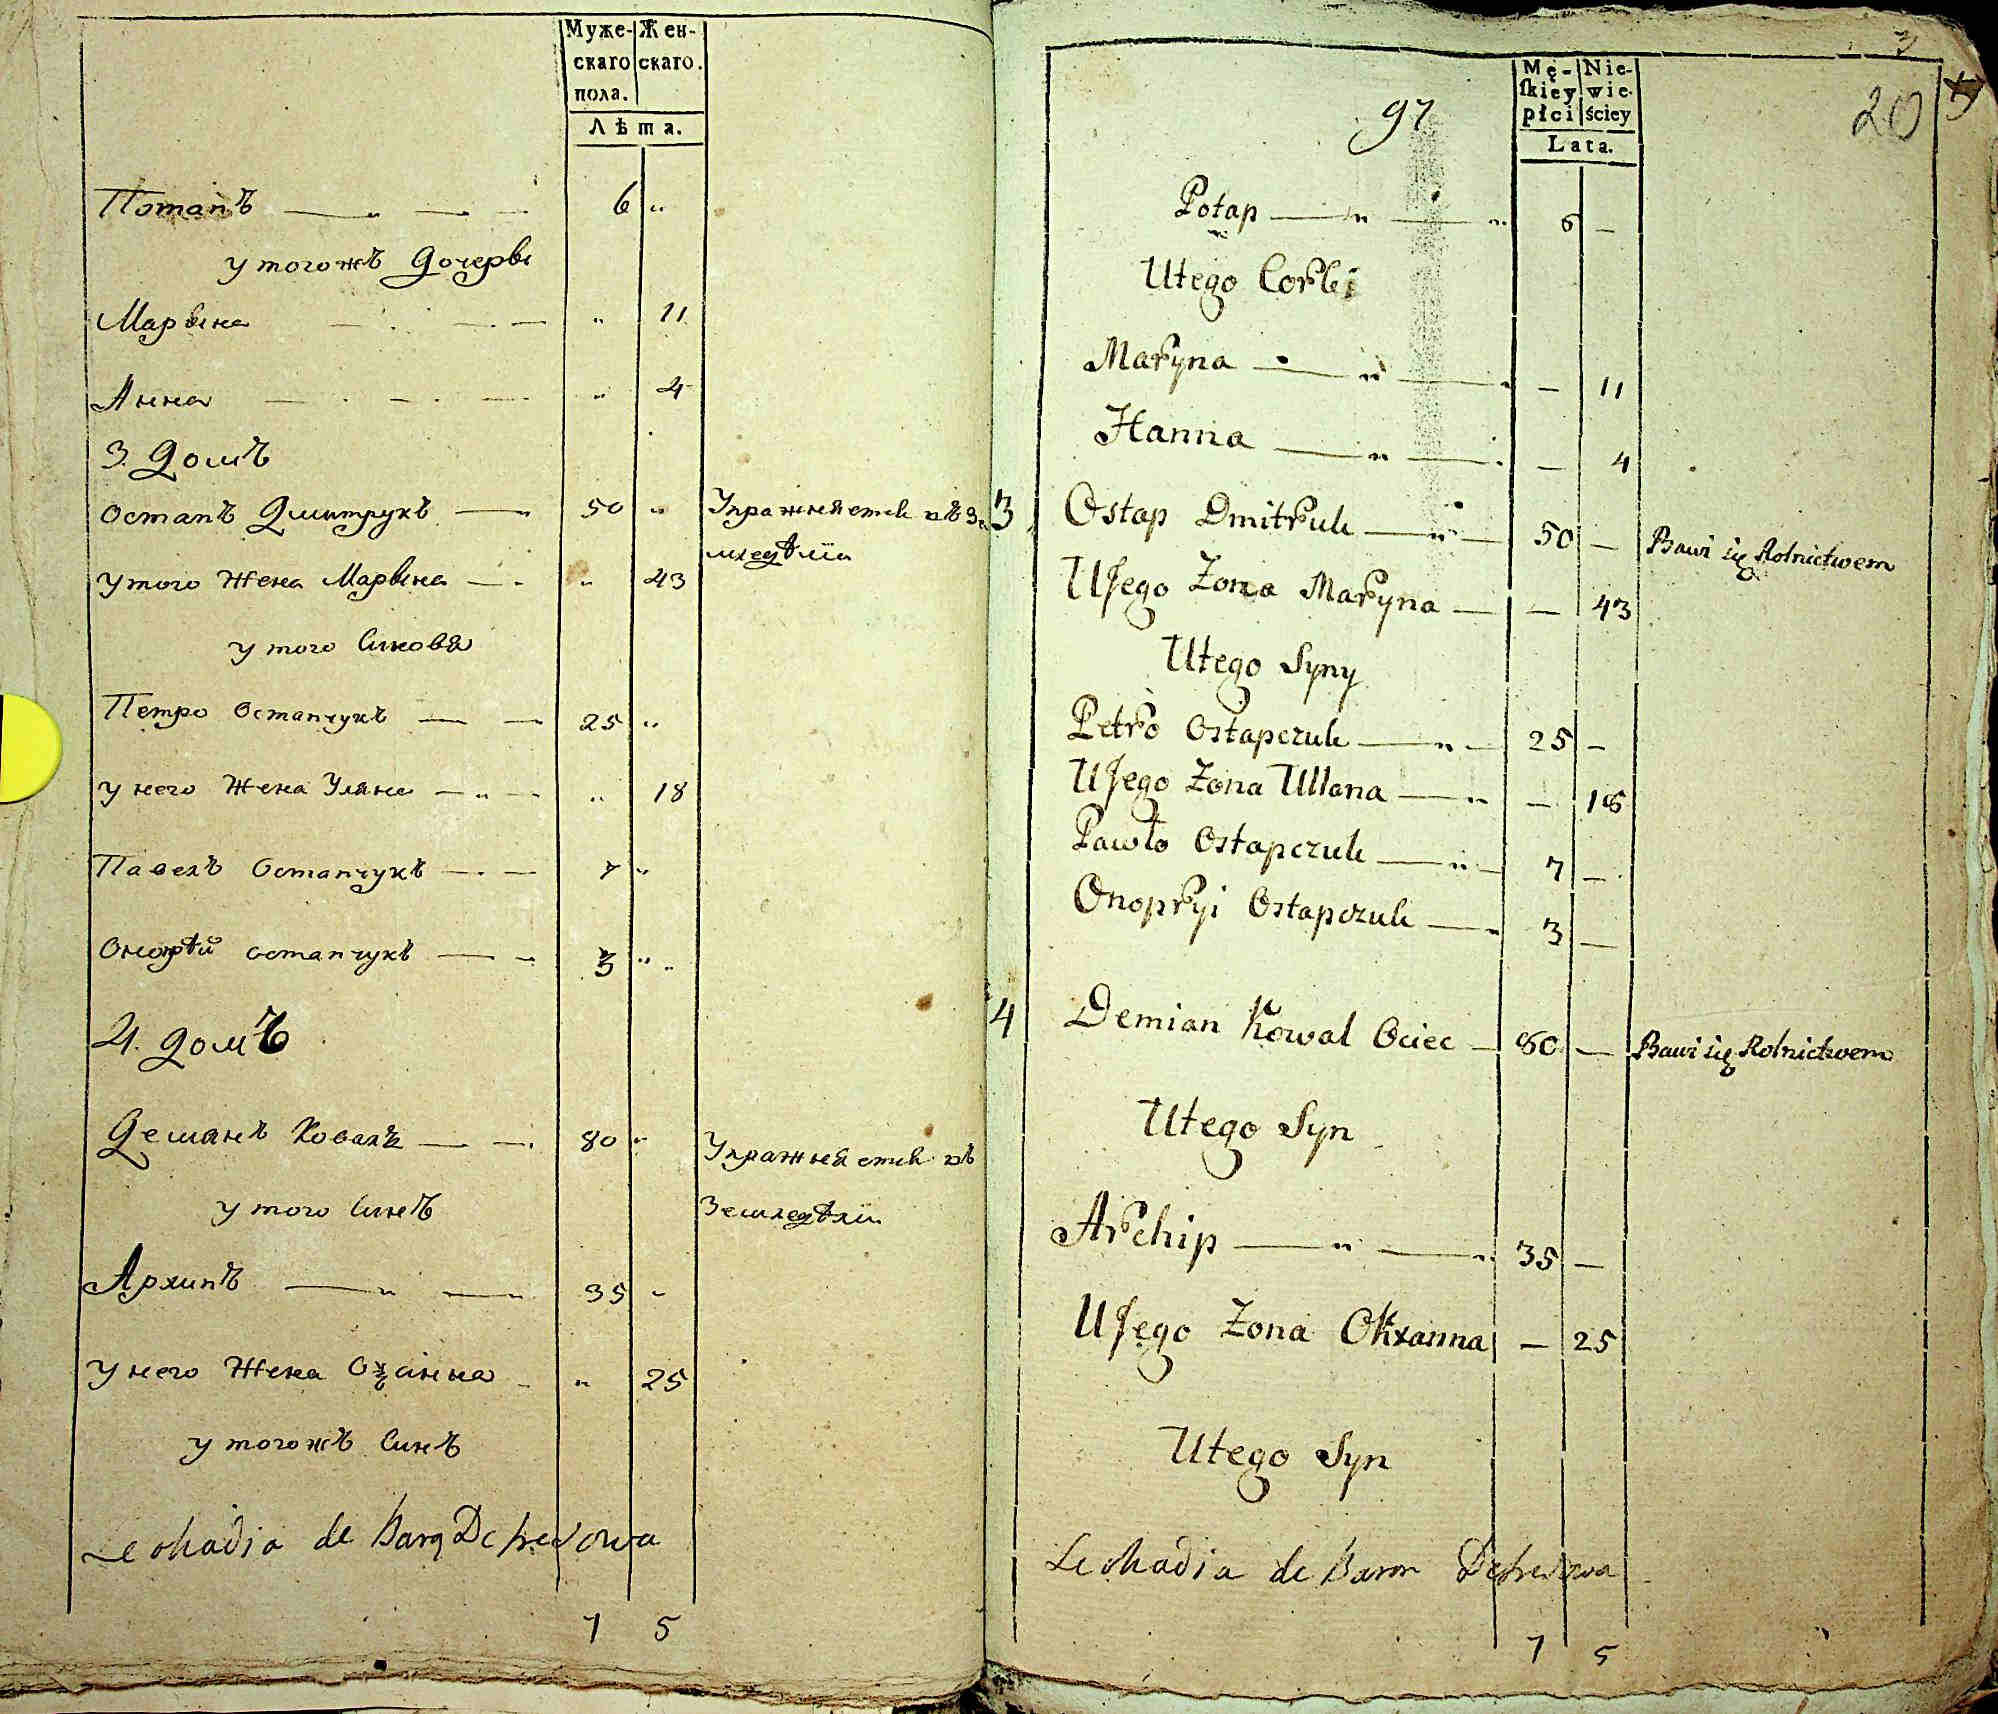 Муже- Жен-
скаго скаго.
пола.
Лѣта.
Потапъ 6 "
у тогожъ дочеры
Марына " 11
Анна " 4
3. домъ
Остапъ Дмитрукъ 50 " Упражняется въ Зе
мледѣлiи
у того Жена Марына " 43
у того Синовя
Петро Остапчукъ 25 "
у него Жена Уляна " 18
Павелъ Остапчукъ 7 "
Онопрѣй остапчукъ 3 "
4. домъ
Демянъ Коваль 80 " Упражняется въ
Земледѣлiи
у того Синъ
Архипъ 35 "
у него Жена Оѯанна " 25
у тогожъ Синъ
Leokadia de
7 5
3
Mę- Nie-
ſkiey wie-
płci ściey
Lata.
97
20
Potap 6 —
Utego Corki
Maryna — 11
Hanna — 4
3 Ostap Dmitruk 50 — Bawi się Rolnictwem
Usego Zona Maryna — 43
Utego Syny
Petro Ostapczuk 25 —
Usego Zona Ullana — 18
Pawło Ostapczuk 7 —
Onopryi Ostapczuk 3 —
4 Demian Kowal Ociec 80 — Bawi się Rolnictwem
Utego Syn
Archip 35 —
Usego Zona Oxanna — 25
Utego Syn
Leokadia de Baron
7 5